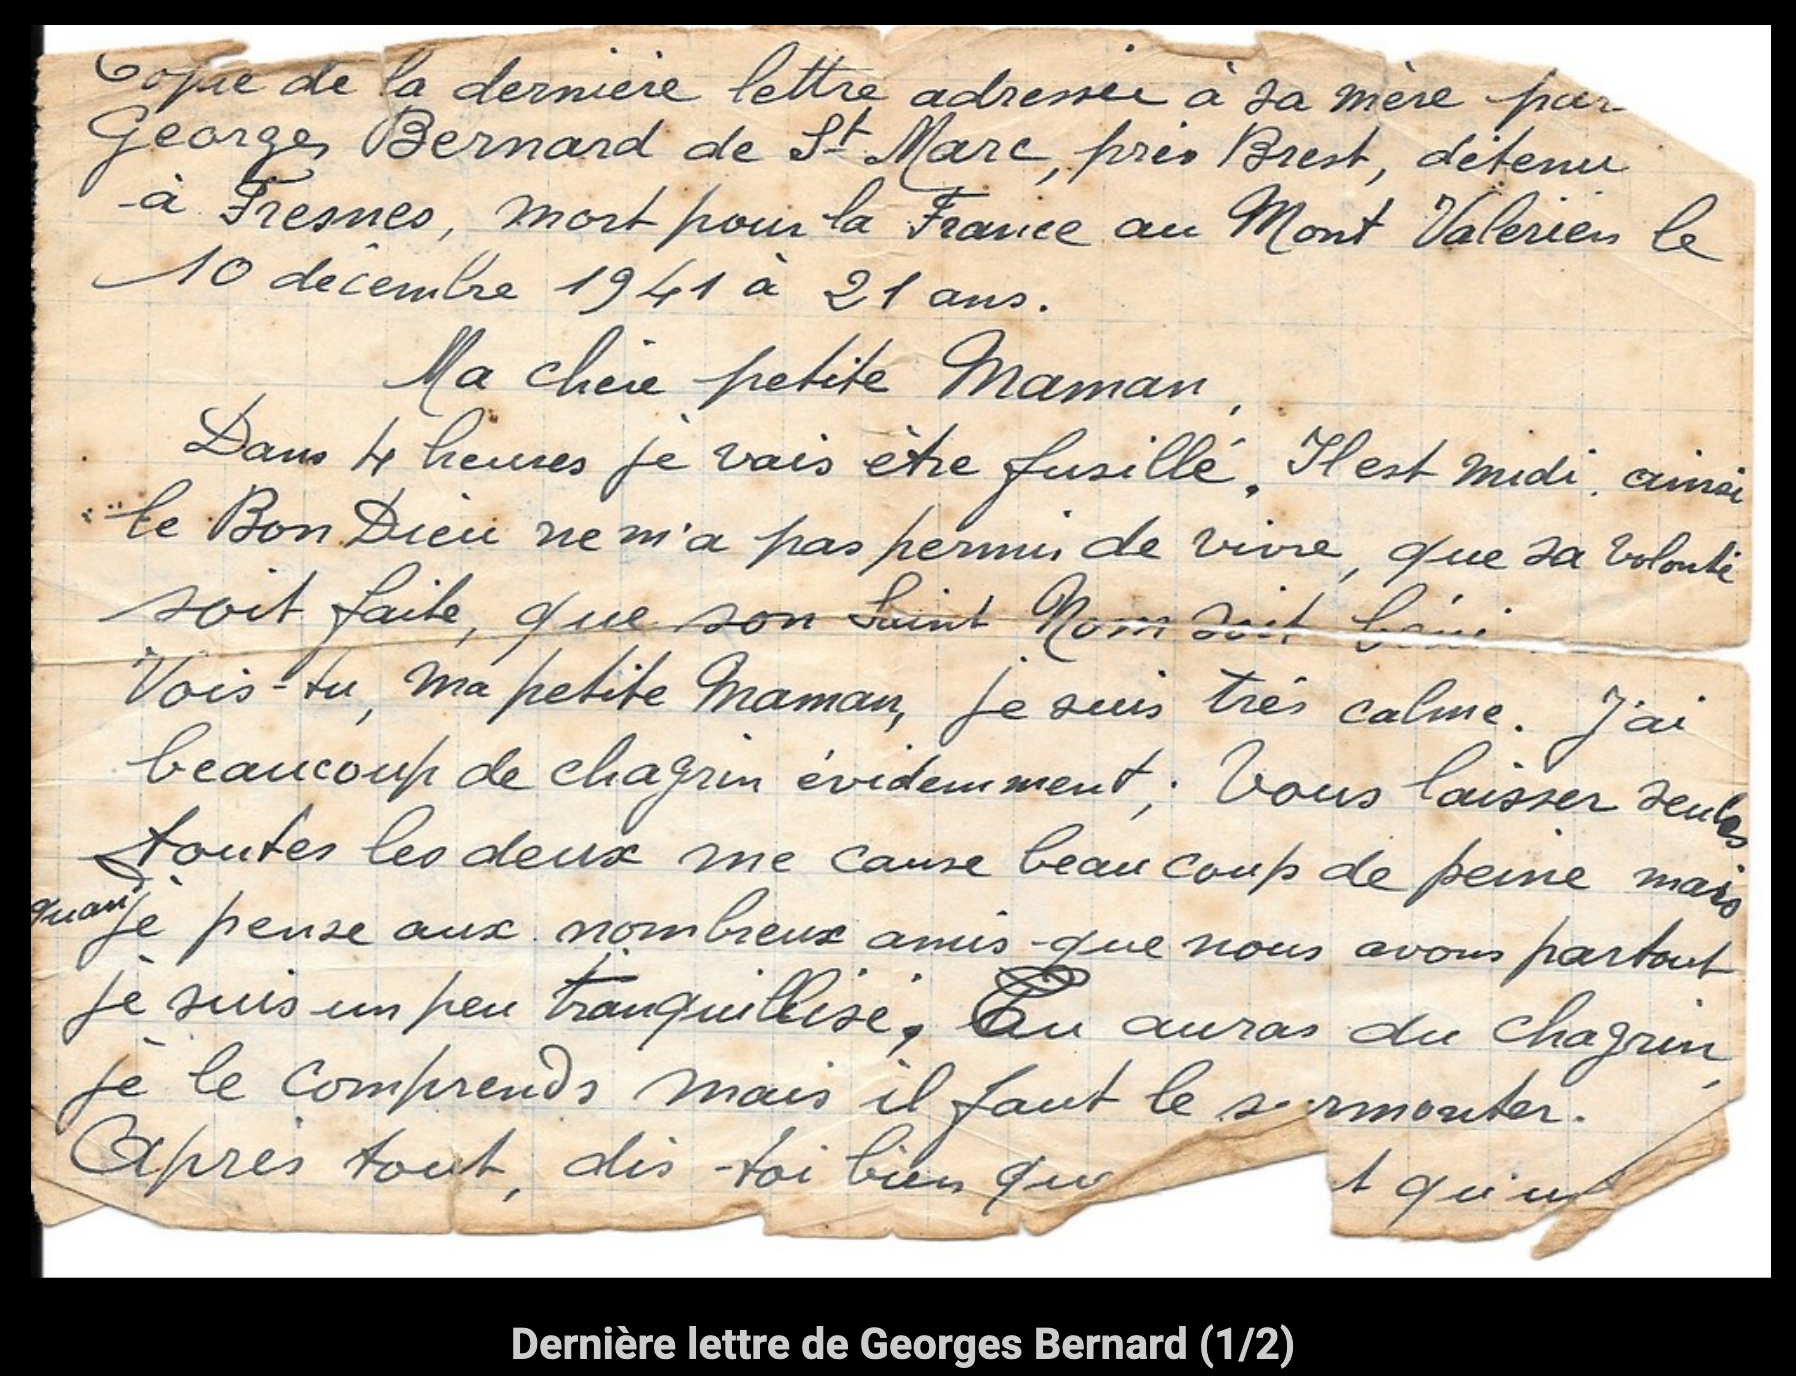 Copie de la dernière lettre adressée à sa mère par
Georges Bernard de St Marc, près Brest, détenu
à Fresnes, mort pour la France au Mont Valérien le
10 décembre 1941 à 21 ans.
Ma chère petite Maman,
Dans 4 heures je vais être fusillé. Il est midi. ainsi
le Bon Dieu ne m'a pas permis de vivre, que sa volonté
soit faite, que son Saint Nom soit béni
Vois-tu, ma petite Maman, je suis très calme. J'ai
beaucoup de chagrin évidemment; Vous laisser seules
toutes les deux me cause beaucoup de peine mais
quand je pense aux nombreux amis que nous avons partout
je suis un peu tranquillisé. Tu auras du chagrin,
je le comprends mais il faut le surmonter.
Après tout, dis-toi bien
Dernière lettre de Georges Bernard (1/2)